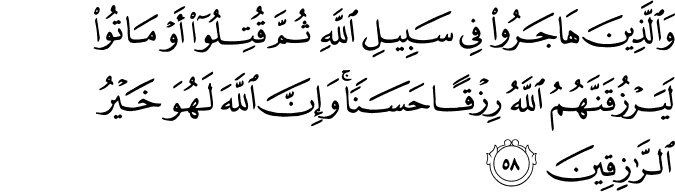 وَٱلَّذِينَ هَاجَرُوا۟ فِى سَبِيلِ ٱللَّهِ ثُمَّ قُتِلُوٓا۟ أَوْ مَاتُوا۟
لَيَرْزُقَنَّهُمُ ٱللَّهُ رِزْقًا حَسَنًا ۚ وَإِنَّ ٱللَّهَ لَهُوَ خَيْرُ
ٱلرَّٰزِقِينَ ٥٨